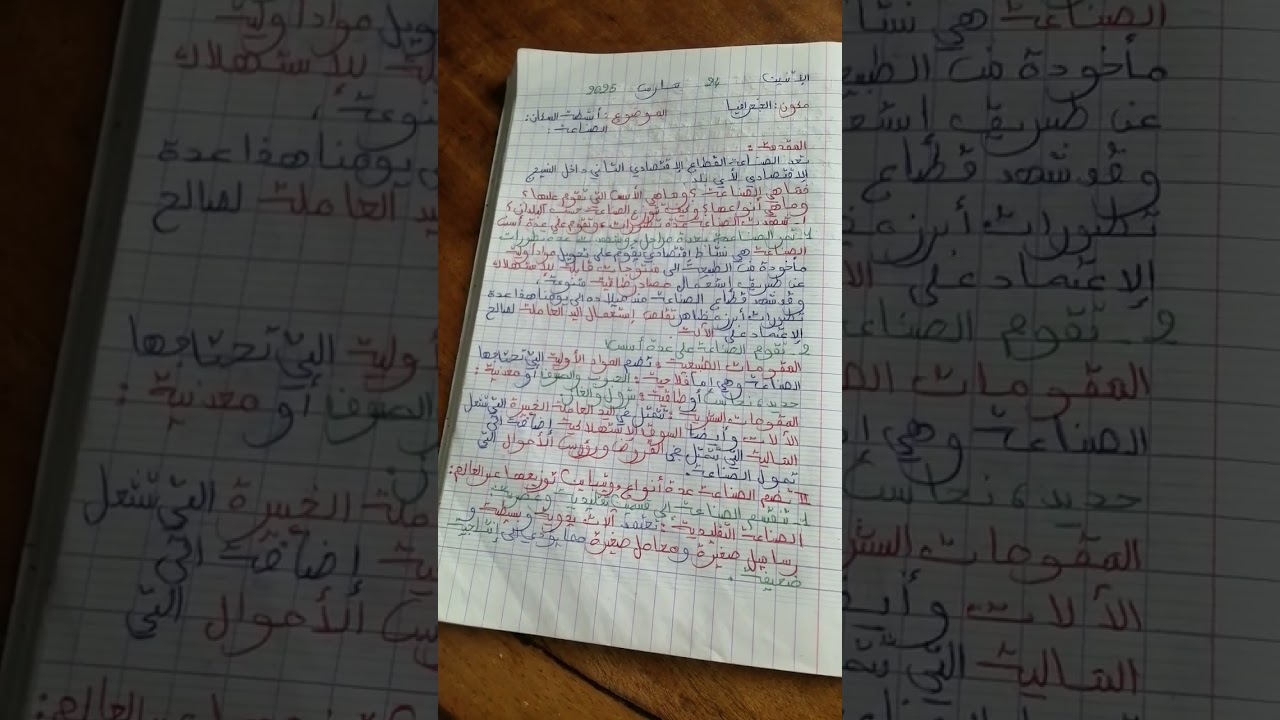 الإثنين 24 مارس 2025
مكون: الجغرافيا الموضوع: أنشطة السكان:
الصناعة:
المقدمة:
تعد الصناعة القطاع الإقتصادي الثاني داخل النسيج
الإقتصادي لأي بلد
فما هي الصناعة؟ وما هي الأسس التي تقوم عليها؟
وما هي أنواعها؟ وكيف تتوزع الصناعة حسب البلدان؟
1- شهدت الصناعة عدة تطورات وتقوم على عدة أسس
1- تمر الصناعة بعدة مراحل وشهدت عدة تطورات
الصناعة هي نشاط إقتصادي يقوم على تحويل مواد أولية
مأخودة من الطبيعة إلى منتوجات قابلة للإستهلاك
عن طريق إستعمال مصادر طاقية متنوعة،
وقد شهد قطاع الصناعة إلى يومنا هذا عدة
تطورات أبرزها تقلص إستعمال اليد العاملة لصالح
الإعتماد على الآلة
2- تقوم الصناعة على عدة أسس
المقومات الطبيعية: تضم المواد الأولية التي تحتاجها
الصناعة وهي إما فلاحية: الصوف أو معدنية:
حديد، نحاس أو طاقية: بترول والغاز
المقومات البشرية: تتمثل في اليد العاملة الخبيرة التي تشغل
الآلات وأيضا السوق الإستهلاكية إضافة إلى
المالية التي تتمثل في القروض ورؤوس الأموال التي
تمول الصناعة.
II- تضم الصناعة عدة أنواع وتباين توزيعها عبر العالم:
1- تنقسم الصناعة إلى تقليدية وعصرية
الصناعة التقليدية: تعتمد آلات يدوية وبسيطة و
رساميل صغيرة ومعامل صغيرة مما يؤدي إلى إنتاجية
ضعيفة.